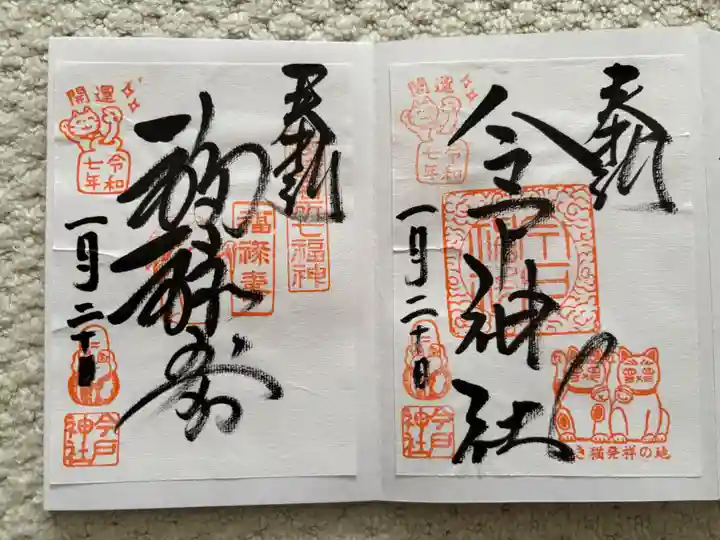 奉拝
今戸神社
一月二十日
開運
令和
七年
招き猫発祥の地
今戸
神社
奉拝
福禄寿
一月二十日
開運
令和
七年
七福神
福禄寿
今戸
神社